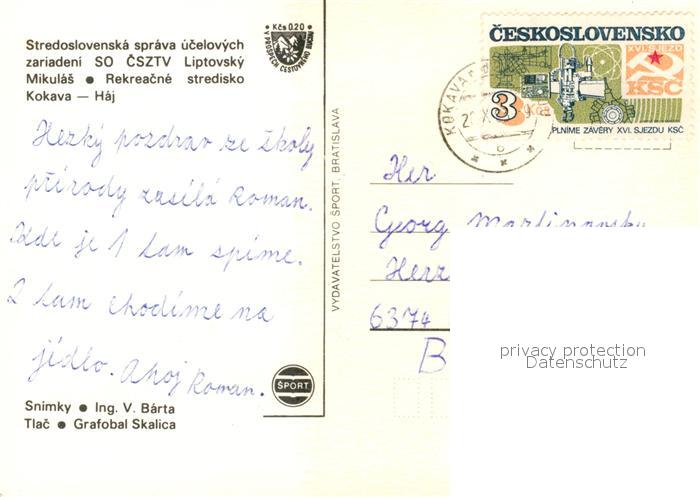 Stredoslovenská správa účelových
zariadení SO ČSZTV Liptovský
Mikuláš ● Rekreačné stredisko
Kokava — Háj
Kčs 0.20
V PROSPECH CESTOVNÉHO RUCHU
Hezký pozdrav ze školy
přírody zasílá Roman.
Zde je 1 tam spíme.
2 tam chodíme na
jídlo. Ahoj Roman.
ŠPORT
Snímky ● Ing. V. Bárta
Tlač ● Grafobal Skalica
VYDAVATEĽSTVO ŠPORT, BRATISLAVA
ČESKOSLOVENSKO
XVI. SJEZD
KSČ
3 Kčs
PLNÍME ZÁVĚRY XVI. SJEZDU KSČ
KOKAVA
Her
Georg
Herz
6374
B
privacy protection
Datenschutz